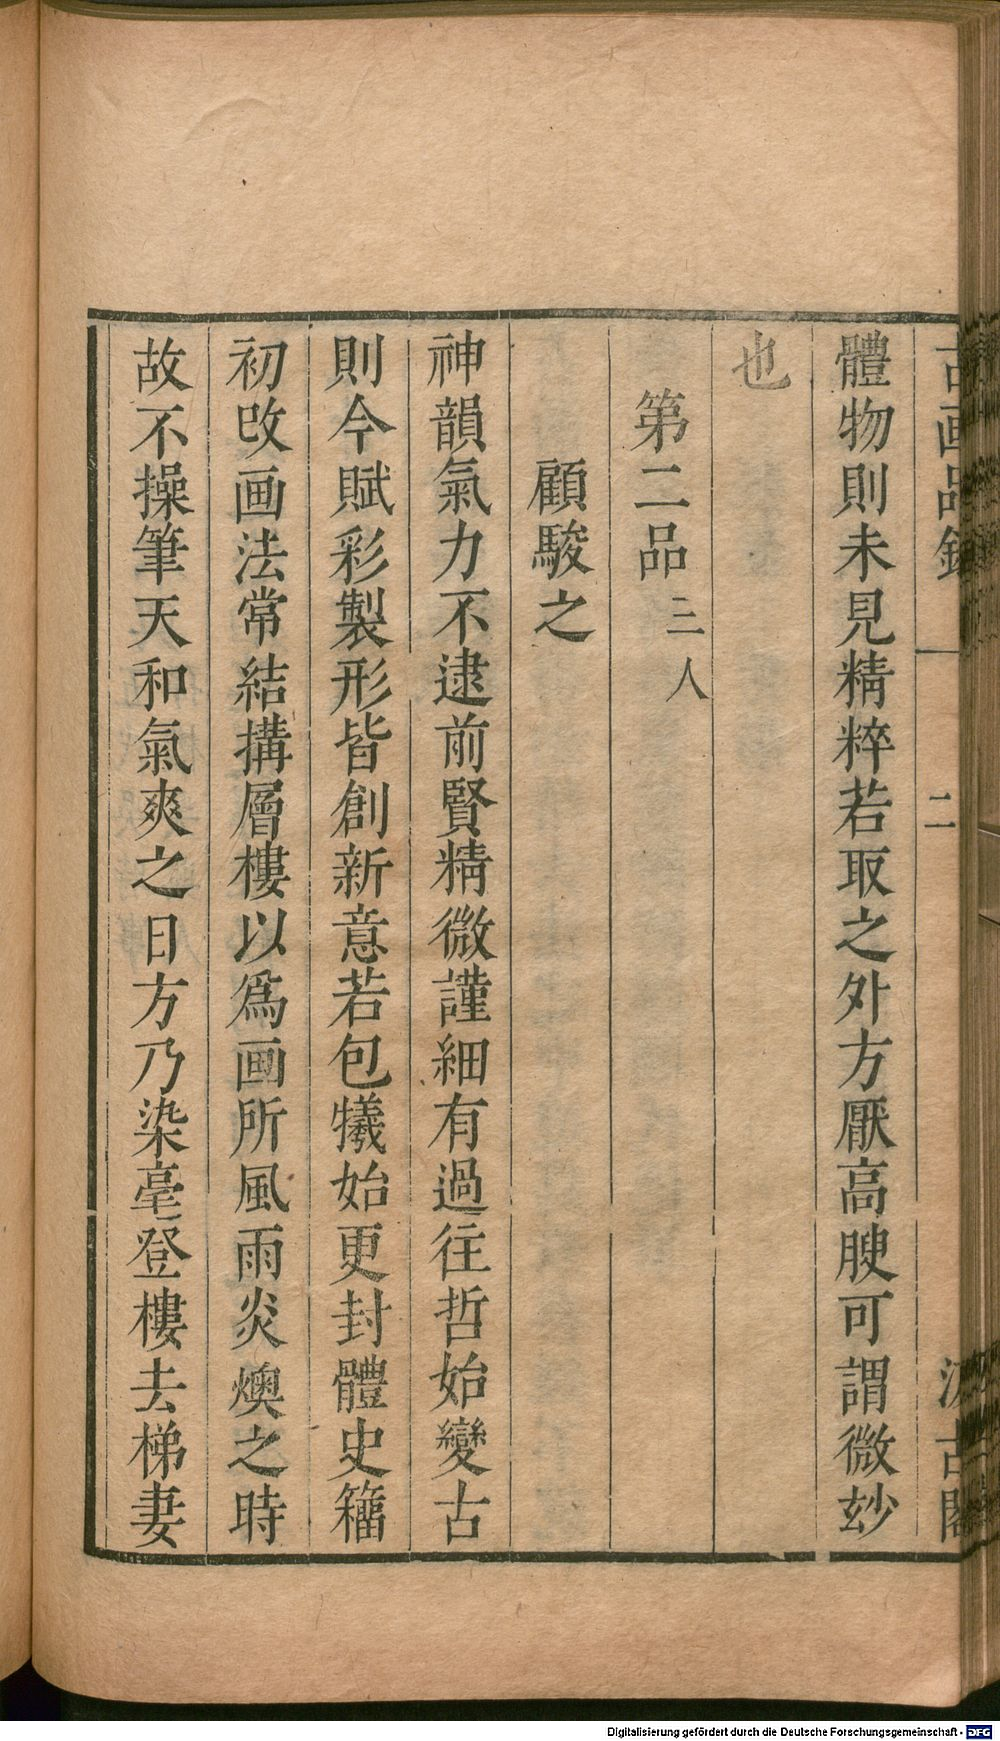 古画品錄 一 二 汲古閣
體物則未見精粹若取之外方厭高腴可謂微玅
也
第二品 三人
顧駿之
神韻氣力不逮前賢精微謹細有過往哲始變古
則今賦彩製形皆創新意若包犧始更封體史籀
初改画法常結搆層樓以爲画所風雨炎燠之時
故不操筆天和氣爽之日方乃染毫登樓去梯妻
Digitalisierung gefördert durch die Deutsche Forschungsgemeinschaft - DFG